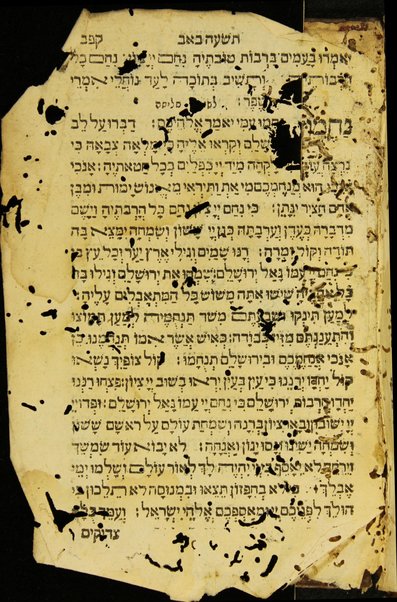 תשעה באב קפב
אמרו בעמים ברבות טובתיה נחם יי ציון נחם כל
ותשיב בתוכה לעד נוחלי אמרי
שפר:
נחמו נחמו עמי יאמר אלהיכם: דברו על לב
ירושלם וקראו אליה כי מלאה צבאה כי
נרצה לקחה מיד יי כפלים בכל חטאתיה: אנכי
אנכי הוא מנחמכם מי את ותיראי מאנוש ימות ומבן
אדם חציר ינתן: כי נחם יי ציון נחם כל חרבתיה וישם
מדברה כעדן וערבתה כגן יי ששון ושמחה ימצא בה
תודה וקול זמרה: רנו שמים וגילי ארץ יער וכל עץ בו
כי נחם יי עמו גאל ירושלם: שמחו את ירושלם וגילו בה
כל אהביה שישו אתה משוש כל המתאבלים עליה:
למען תינקו ושבעתם משד תנחמיה למען תמוצו
והתענגתם מזיו כבודה: כאיש אשר אמו תנחמנו כן
אנכי אנחמכם ובירושלם תנחמו: קול צופיך נשאו
קול יחדו ירננו כי עין בעין יראו בשוב יי ציון: פצחו רננו
יחדו חרבות ירושלם כי נחם יי עמו גאל ירושלם: ופדויי
יי ישובון ובאו ציון ברנה ושמחת עולם על ראשם ששון
ושמחה ישיגו ונסו יגון ואנחה: לא יבוא עוד שמשך
וירחך לא יאסף כי יי יהיה לך לאור עולם ושלמו ימי
אבלך: כי לא בחפזון תצאו ובמנוסה לא תלכון כי
הולך לפניכם יי ומאספכם אלהי ישראל: ועמך כלם
צדיקים